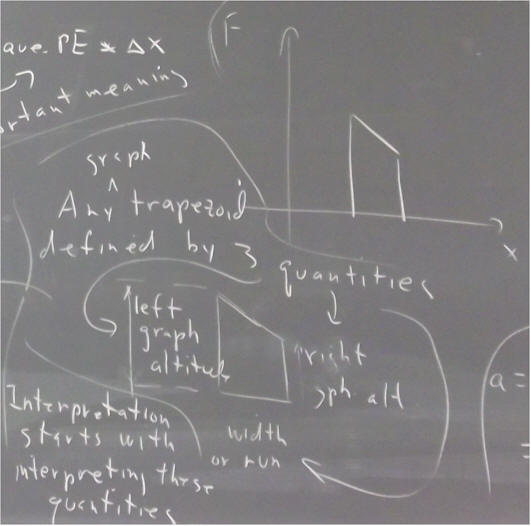 ave. PE * Δx
rtant meaning
F
x
graph
^
Any trapezoid
defined by 3
quantities
left
graph
altitude
right
graph alt
width
or run
Interpretation
starts with
interpreting these
quantities
a =
=